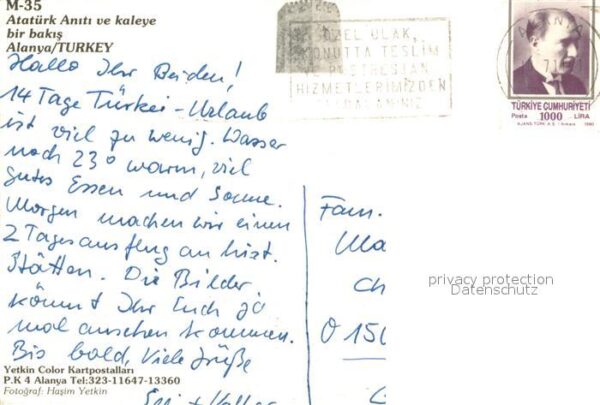 M-35
Atatürk Anıtı ve kaleye
bir bakış
Alanya/TURKEY
Hallo Ihr Beiden!
14 Tage Türkei-Urlaub
ist viel zu wenig. Wasser
noch 23° warm, viel
gutes Essen und Sonne.
Morgen machen wir einen
2 Tagesausflug an hist.
Stätten. Die Bilder
könnt Ihr Euch ja
mal ansehen kommen.
Bis bald, Viele Grüße
Yetkin Color Kartpostalları
P.K 4 Alanya Tel:323-11647-13360
Fotoğraf: Haşim Yetkin
ÖZEL ULAK,
KONUTTA TESLİM
VE POSTRESTAN
HİZMETLERİMİZDEN
TÜRKİYE CUMHURİYETİ
Posta 1000 LİRA
AJANS-TÜRK A.Ş. - Ankara 1990
Fam.
Ma
Ch
O 150
privacy protection
Datenschutz